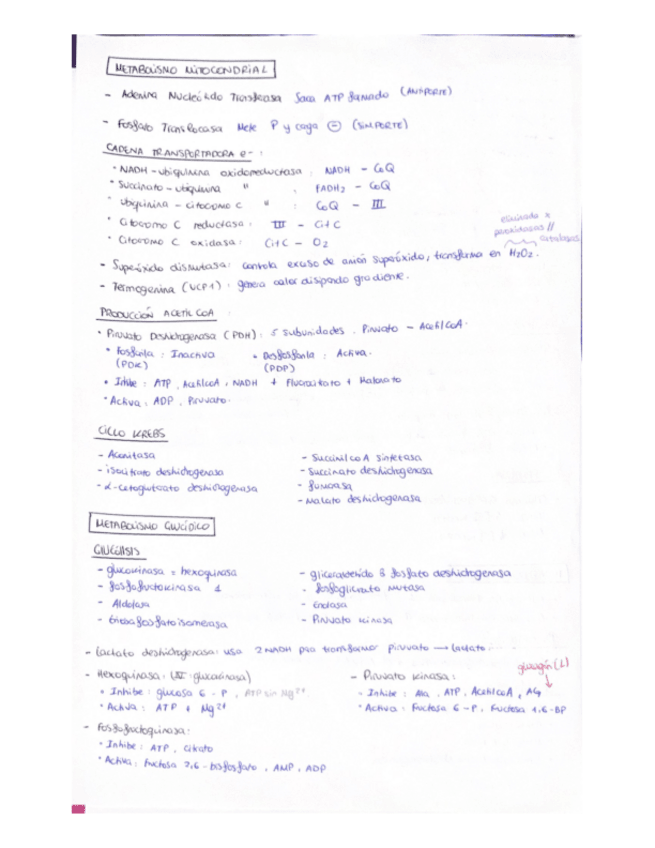 METABOLISMO MITOCONDRIAL
- Adenina Nucleótido Translocasa Saca ATP formado (ANTIPORTE)
- Fosfato Translocasa Mete P y carga ⊖ (SIMPORTE)
CADENA TRANSPORTADORA e⁻ :
· NADH - ubiquinina oxidoreductasa : NADH - CoQ
· Succinato - ubiquinina " : FADH2 - CoQ
· Ubiquinina - citocromo C " : CoQ - III
· Citocromo C reductasa : III - Cit C
· Citocromo C oxidasa : Cit C - O2
eliminada x
peroxidasas //
catalasas
- Superóxido dismutasa: controla exceso de anión superóxido, transforma en H2O2.
- Termogenina (UCP1) : genera calor disipando gradiente.
PRODUCCIÓN ACETIL CoA
· Piruvato Deshidrogenasa (PDH) : 5 subunidades . Piruvato - Acetil CoA.
· Fosforila : Inactiva · Desfosforila : Activa.
(PDK) (PDP)
· Inhibe : ATP, Acetil CoA, NADH +
· Activa : ADP, Piruvato.
CICLO KREBS
- Aconitasa - Succinil coA sintetasa
- isocitrato deshidrogenasa - Succinato deshidrogenasa
- α-cetoglutarato deshidrogenasa - fumarasa
- Malato deshidrogenasa
METABOLISMO GLUCÍDICO
GLUCÓLISIS
- glucokinasa = hexoquinasa - gliceraldehído 3 fosfato deshidrogenasa
- fosfofructokinasa 1 - fosfoglicerato mutasa
- Aldolasa - Enolasa
- triosa fosfato isomerasa - Piruvato kinasa
- Lactato deshidrogenasa: usa 2 NADH para transformar piruvato → lactato.
glucagón (L)
- Hexoquinasa : glucokinasa) - Piruvato kinasa:
· Inhibe : glucosa 6 - P, ATP sin Mg2+ · Inhibe : Ala, ATP, Acetil CoA, AG
· Activa : ATP + Mg2+ · Activa : Fructosa 6-P, Fructosa 1,6-BP
- Fosfofructoquinasa:
· Inhibe : ATP, citrato
· Activa : Fructosa 2,6 - bisfosfato, AMP, ADP